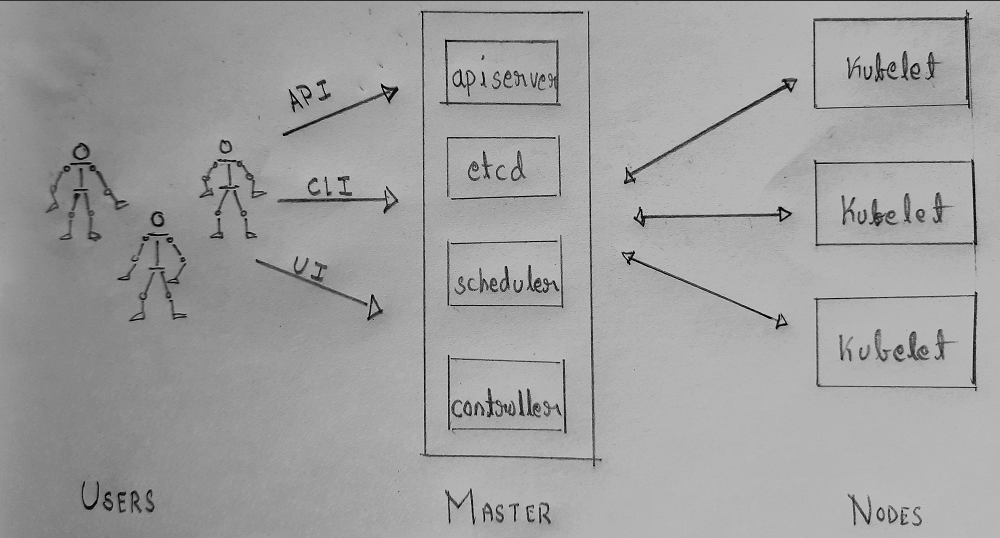 API
CLI
UI
apiserver
etcd
scheduler
controller
Kubelet
Kubelet
Kubelet
USERS
MASTER
NODES